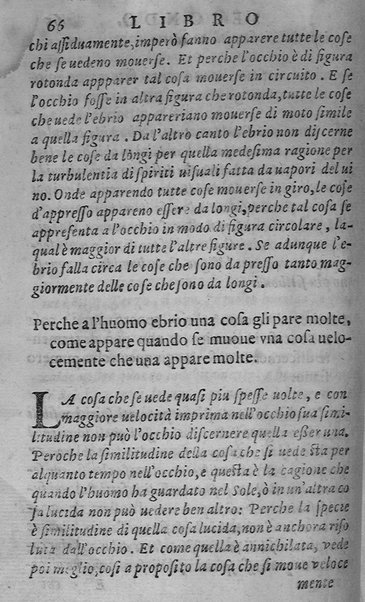 66 LIBRO
chi assiduamente, imperò fanno apparere tutte le cose
che se uedeno mouerse. Et perche l'occhio è di figura
rotonda appparer tal cosa mouerse in circuito. E se
l'occhio fosse in altra figura che rotonda, tutte le cose
che uede l'ebrio appareriano mouerse di moto simile
a quella figura. Da l'altro canto l'ebrio non discerne
bene le cose da lõgi per quella medesima ragione per
la turbulentia di spiriti uisuali fatta da uapori del ui
no. Onde apparendo tutte cose mouerse in giro, le cose
d'appresso appareno essere da longi, perche tal cosa se
appresenta a l'occhio in modo di figura circolare, la-
qual è maggior di tutte l'altre figure. Se adunque l'e-
brio falla circa le cose che sono da presso tanto mag-
giormente delle cose che sono da longi.
Perche a l'huomo ebrio una cosa gli pare molte,
come appare quando se muoue vna cosa uelo-
cemente che una appare molte.
LA cosa che se uede quasi piu spesse uolte, e con
maggiore uelocità imprima nell'occhio sua simi-
litudine non può l'occhio discernere quella esser una.
Peroche la similitudine della cosa che si uede sta per
alquanto tempo nell'occhio, e questa è la cagione che
quando l'huomo ha guardato nel Sole, ò in un'altra co
sa lucida non può uedere ben altro: Perche la specie
è similitudine di quella cosa lucida, non è anchora riso
luta dall'occhio. Et come quella è annichilata, vede
poi meglio, cosi a proposito la cosa che si moue veloce
mente